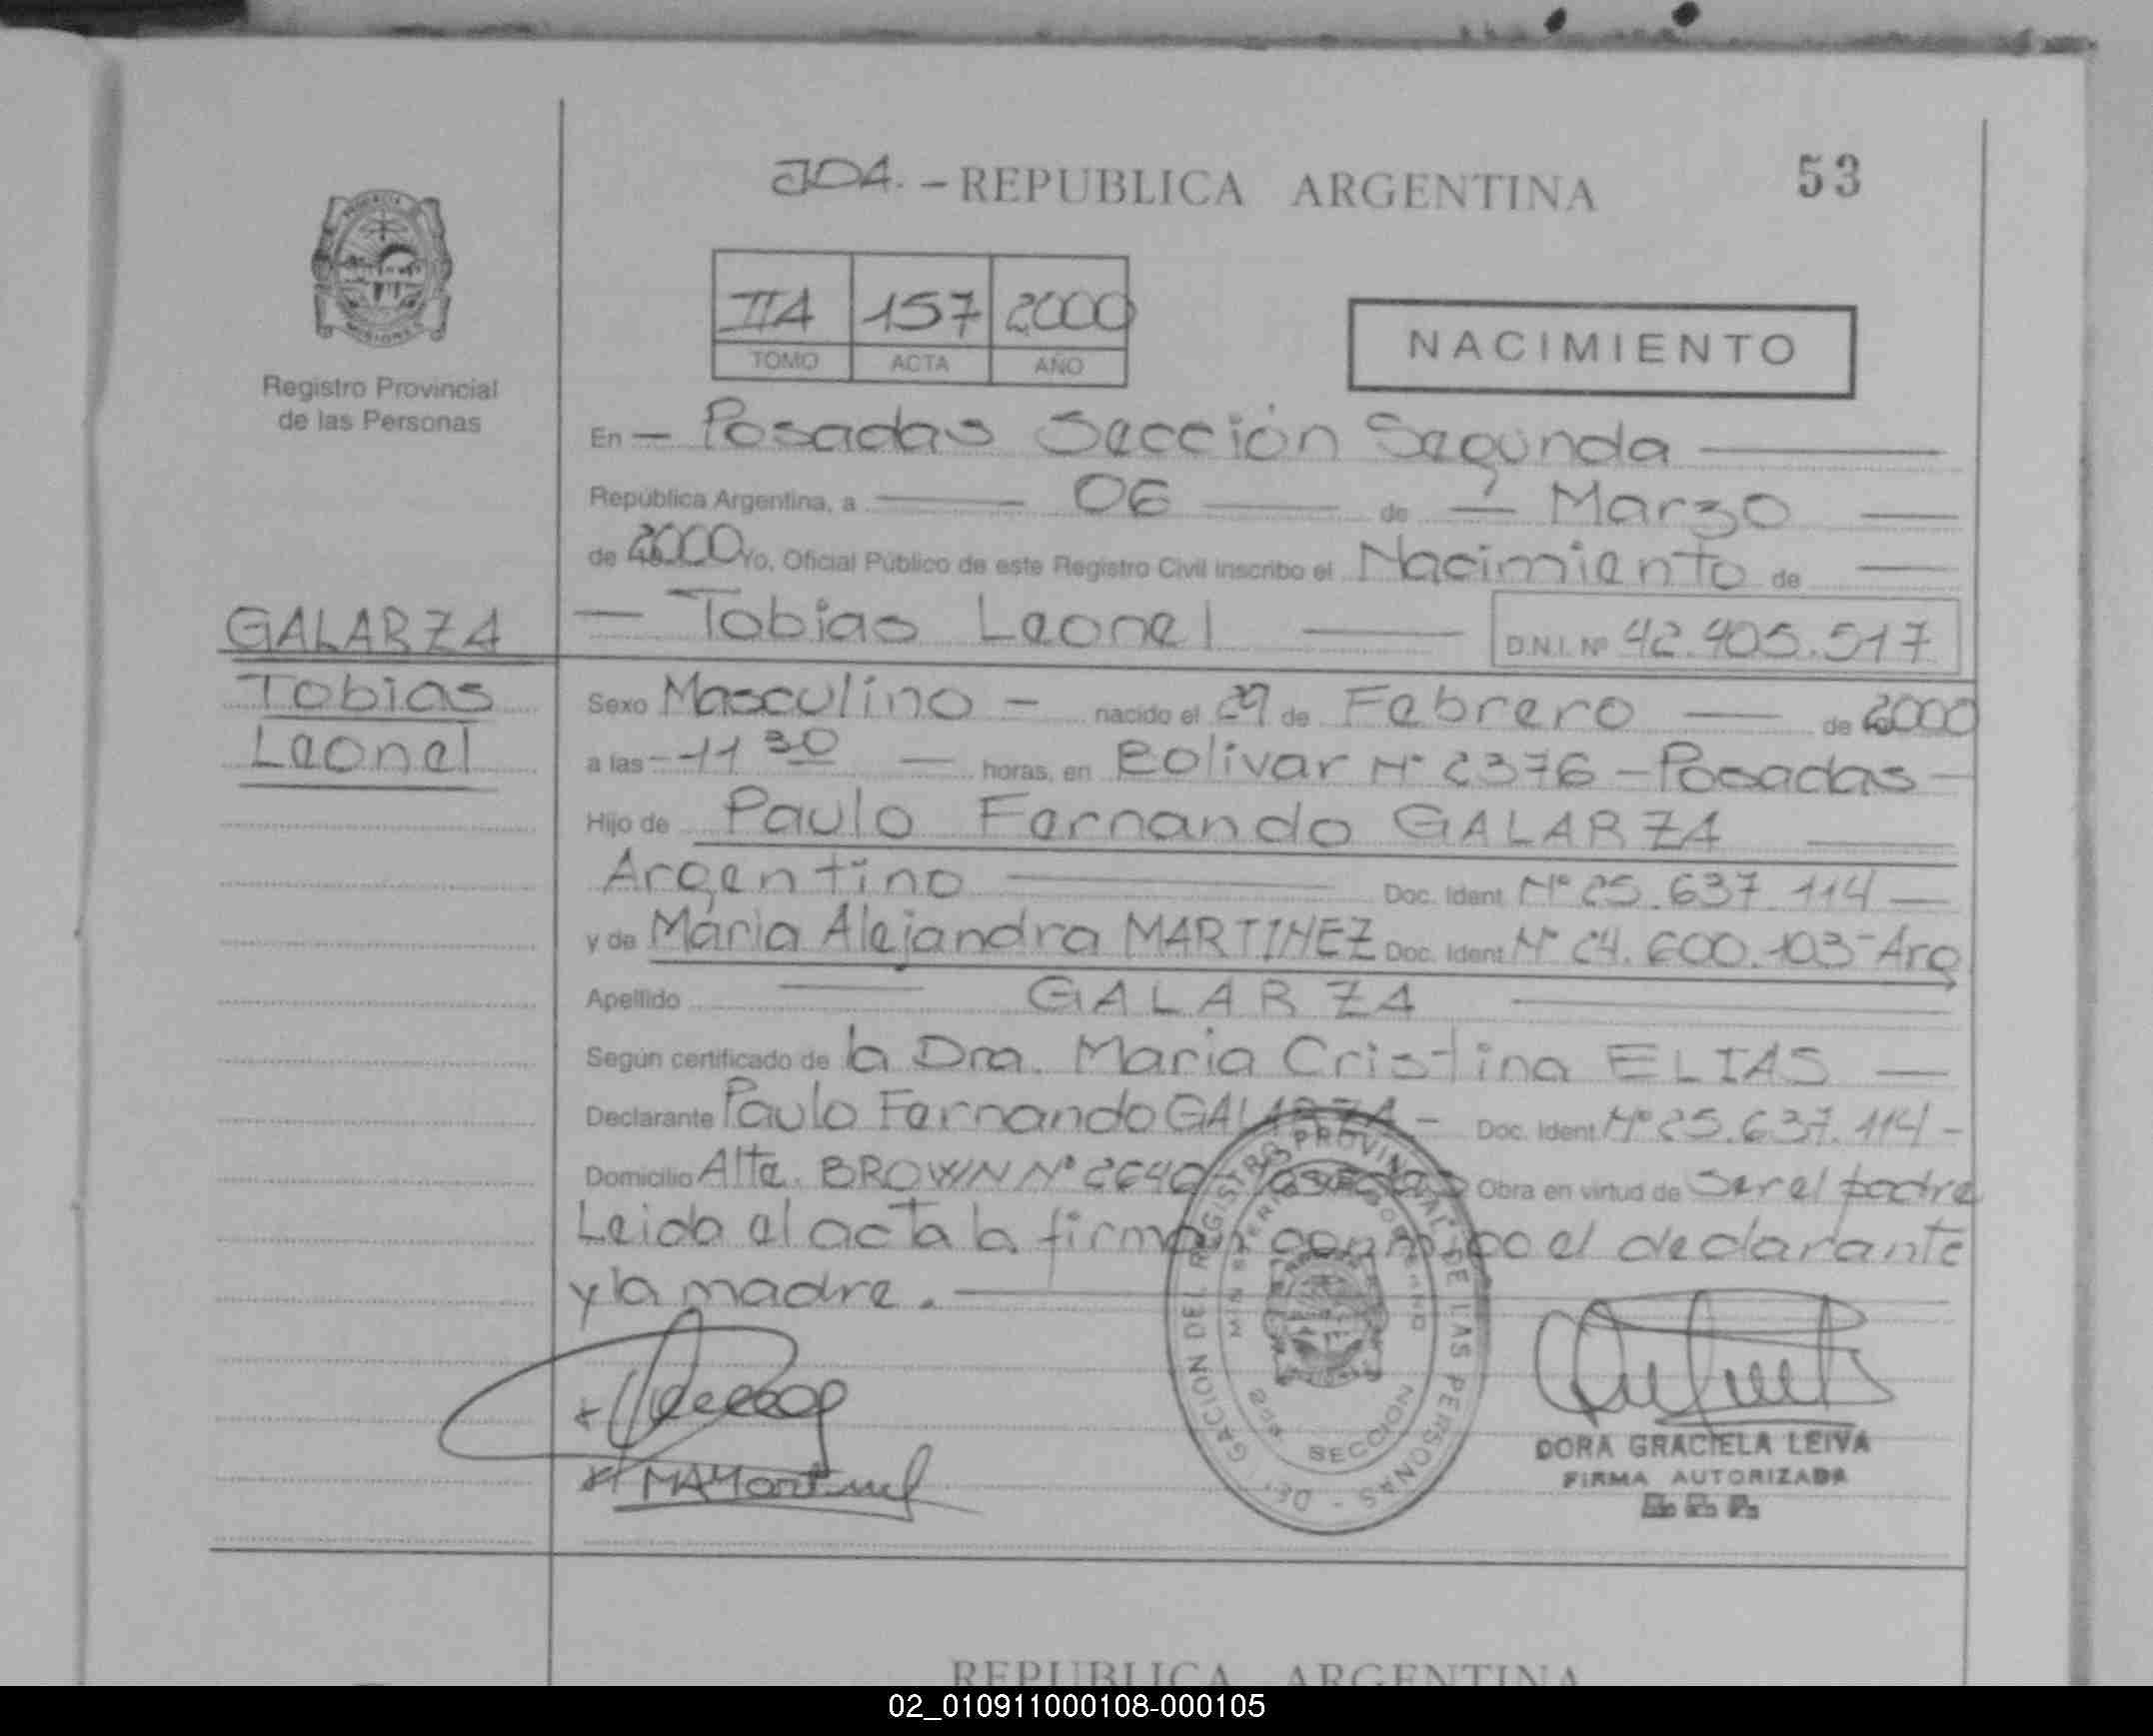 JOA. - REPUBLICA ARGENTINA
53
IIA 157 2000
TOMO ACTA AÑO
NACIMIENTO
Registro Provincial
de las Personas
En — Posadas Sección Segunda —
República Argentina, a — 06 — de — Marzo —
de 2000 Yo, Oficial Público de este Registro Civil inscribo el Nacimiento de —
GALARZA
Tobias
Leonel
— Tobias Leonel — D.N.I. Nº 42.405.517
Sexo Masculino — nacido el 29 de Febrero — de 2000
a las - 11 30 — horas, en Bolivar Nº 2376 - Posadas -
Hijo de Paulo Fernando GALARZA —
Argentino — Doc. Ident. Nº 25.637.114 —
y de Maria Alejandra MARTINEZ Doc. Ident. Nº 24.600.103 - Arg
Apellido — GALARZA —
Según certificado de la Dra. Maria Cristina ELIAS —
Declarante Paulo Fernando GALARZA - Doc. Ident. Nº 25.637.114 -
Domicilio Alte. BROWN Nº 2640 Posadas Obra en virtud de ser el padre
Leida el acta la firman conmigo el declarante
y la madre. —
MAMartinez
REGISTRO PROVINCIAL DE LAS PERSONAS
SECCION
DORA GRACIELA LEIVA
FIRMA AUTORIZADA
REPUBLICA ARGENTINA
02_010911000108-000105